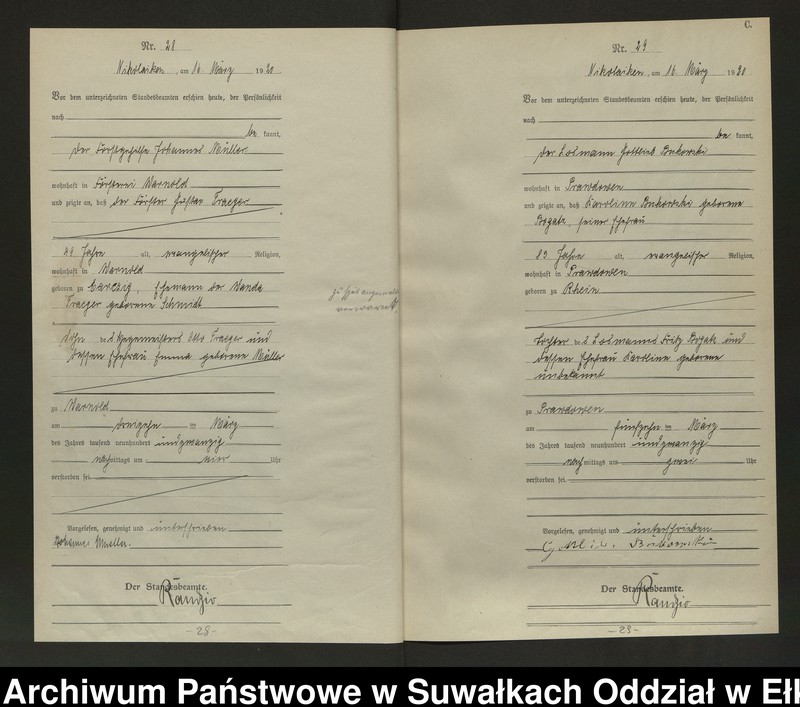 Nr. 28
Nikolaiken, am 16. März 1920
Vor dem unterzeichneten Standesbeamten erschien heute, der Persönlichkeit
nach
be kannt,
der Forstgehilfe Johannes Müller
wohnhaft in Försterei Warnold
und zeigte an, daß der Förster Gustav Traeger
49 Jahre alt, evangelischer Religion,
wohnhaft in Warnold
geboren zu , Ehemann der Wanda
Traeger geborene Schmidt
Sohn des Otto Traeger und
dessen Ehefrau Emma geborene Müller
zu Warnold
am dreizehn ten März
des Jahres tausend neunhundert undzwanzig
nachmittags um vier Uhr
verstorben sei.
Vorgelesen, genehmigt und unterschrieben
Johannes Mueller.
Der Standesbeamte.
Randzio
- 28 -
C.
Nr. 29
Nikolaiken, am 16. März 1920
Vor dem unterzeichneten Standesbeamten erschien heute, der Persönlichkeit
nach
be kannt,
der Losmann Gottlieb Bukowski
wohnhaft in Prawdowen
und zeigte an, daß Karoline Bukowski geborene
Rogatz, seine Ehefrau
83 Jahre alt, evangelischer Religion,
wohnhaft in Prawdowen
geboren zu Rhein
Tochter des Losmanns Fritz Rogatz und
dessen Ehefrau Karoline geborene
unbekannt
zu Prawdowen
am fünfzehn ten März
des Jahres tausend neunhundert undzwanzig
nachmittags um zwei Uhr
verstorben sei.
Vorgelesen, genehmigt und unterschrieben
Gottlieb Bukowski
Der Standesbeamte.
Randzio
- 29 -
Archiwum Państwowe w Suwałkach Oddział w Ełk